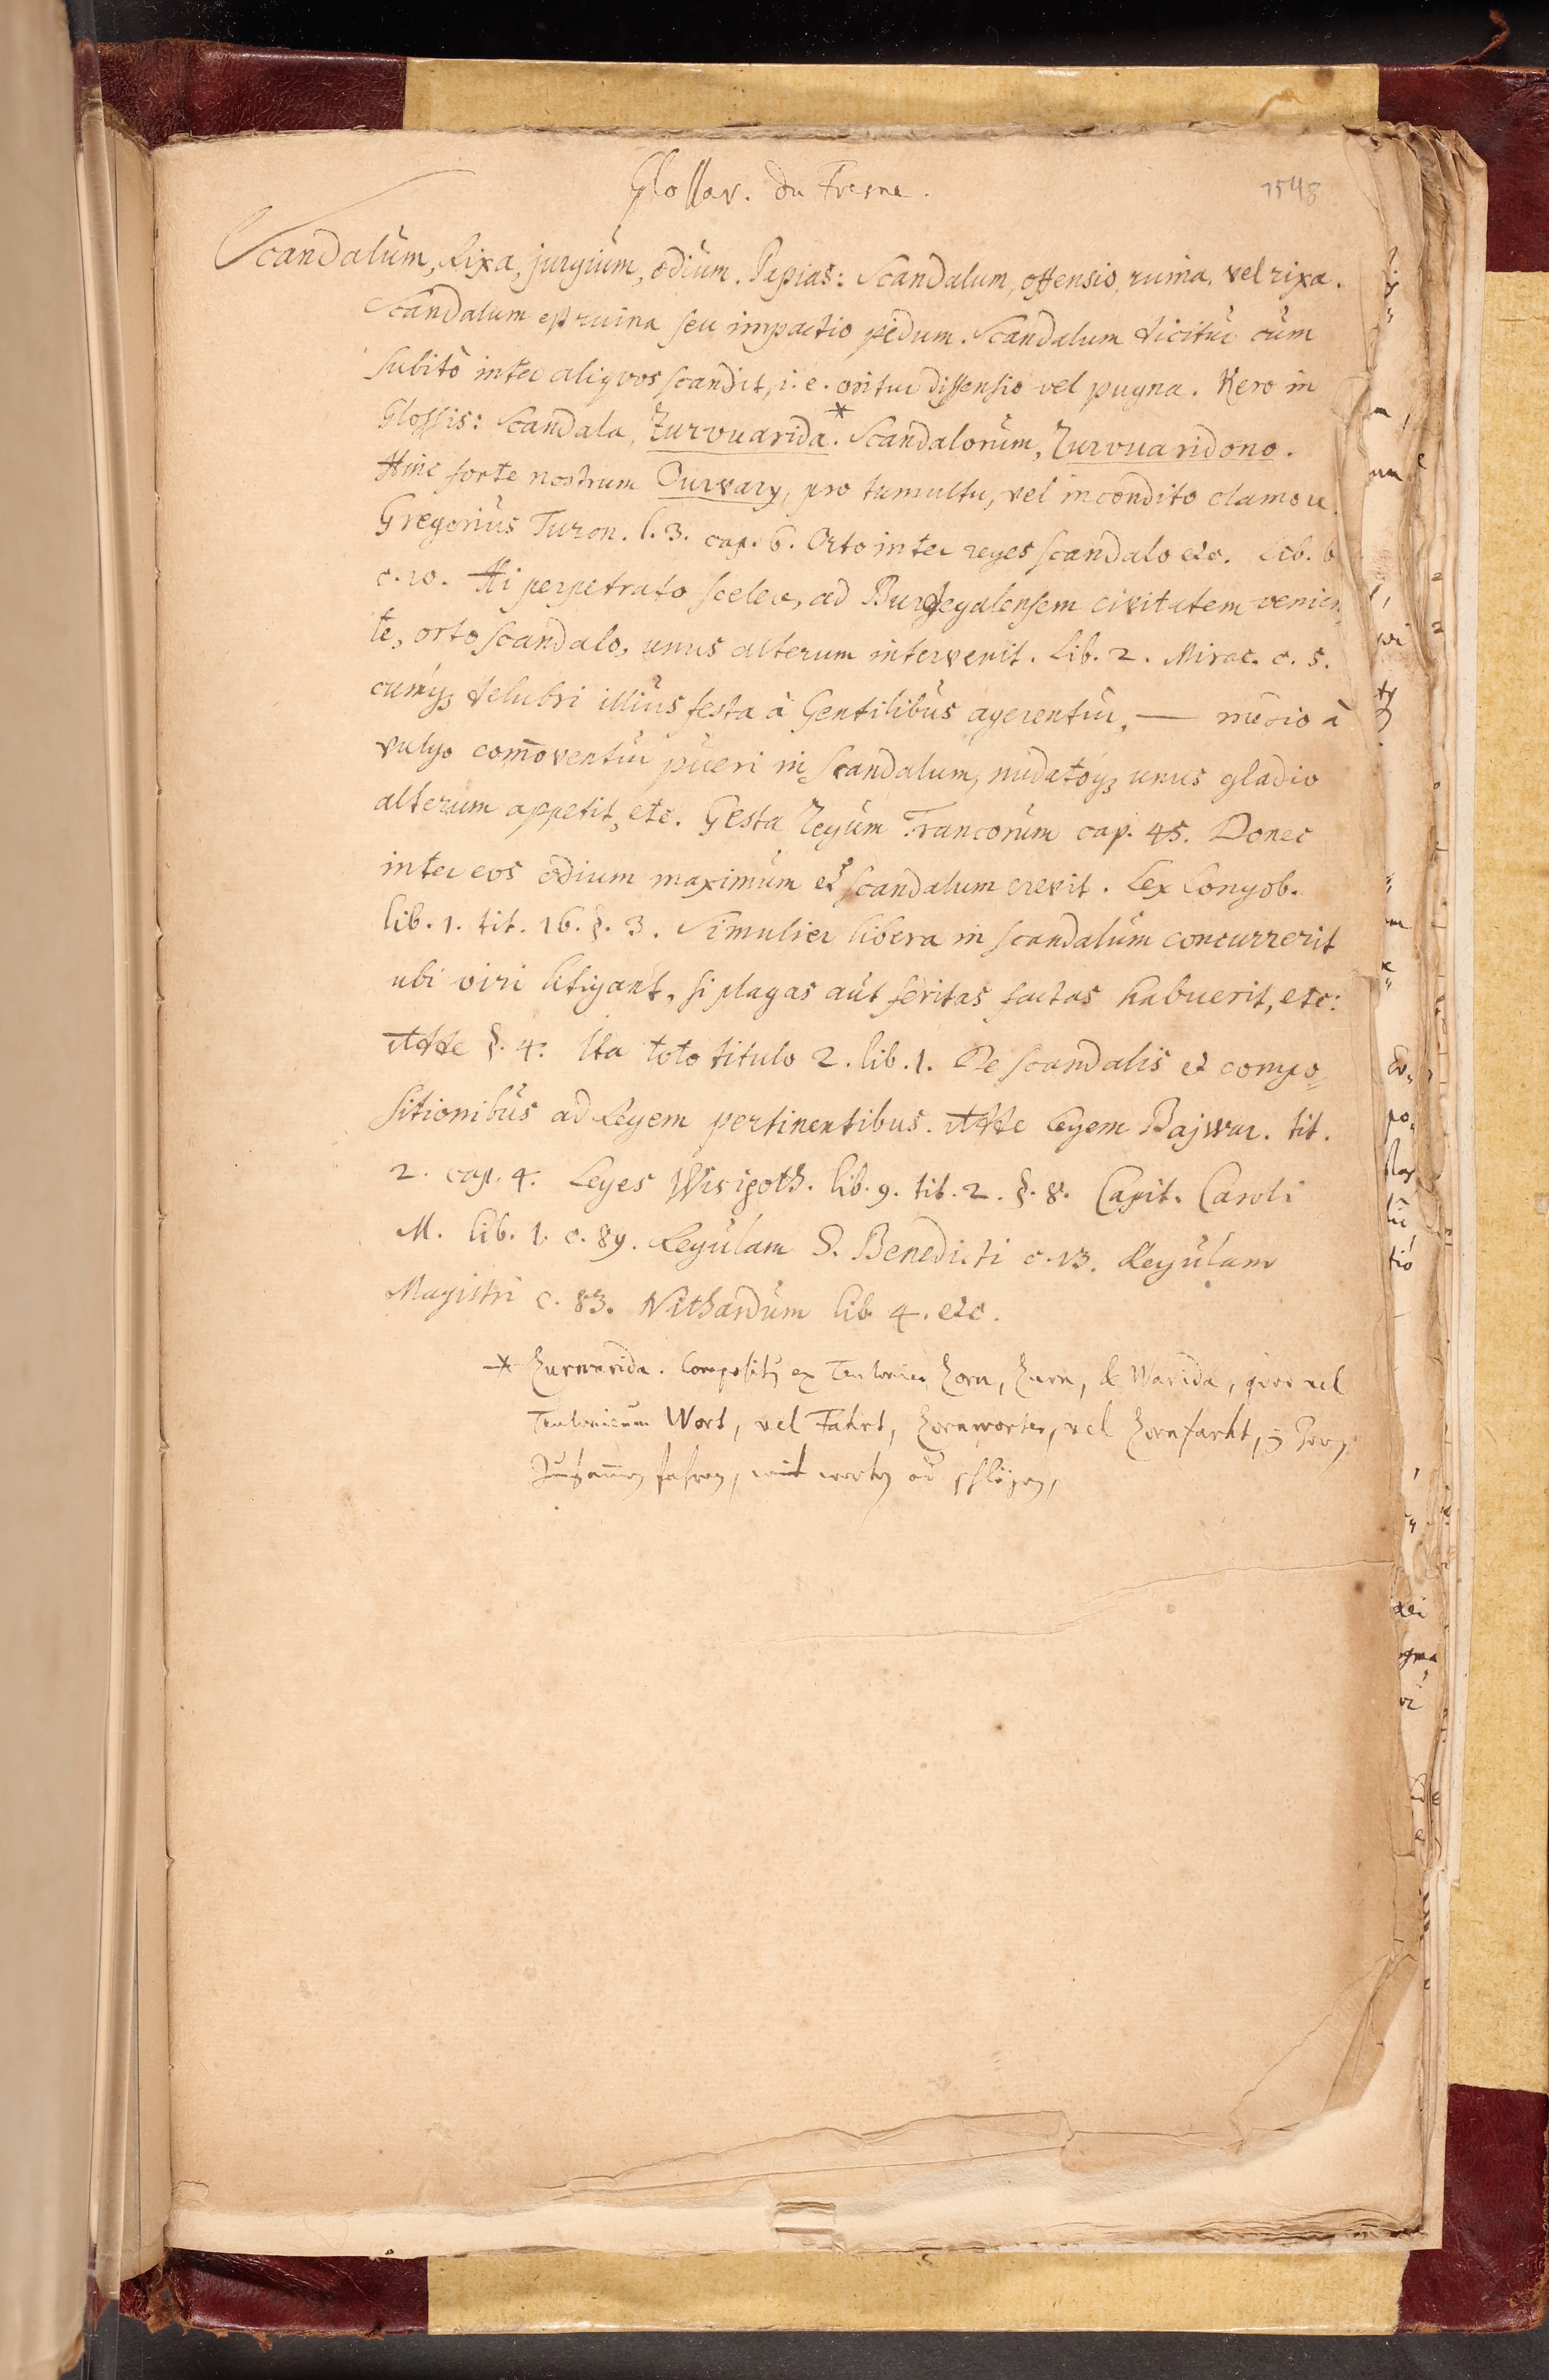 Glossar. du Fresne.
1548
Scandalum, Rixa, jurgium, odium. Papias: Scandalum, offensio, ruina, vel rixa.
Scandalum est ruina seu impactio pedum. Scandalum dicitur cum
subitò inter aliqvos scandit, i. e. oritur dissensio vel pugna. Kero in
Glossis: Scandala, Zurvuarida.* Scandalorum, Zurvuaridono.
Hinc forte nostrum Ourvary, pro tumultu, vel incondito clamore.
Gregorius Turon. l. 3. cap. 6. Orto inter reges scandalo etc. Lib. 6
c. 10. Hi perpetrato scelere, ad Burdegalensem civitatem venien
te, orto scandalo, unus alterum interemit. Lib. 2. Mirac. c. 5.
cumq; delubri illius festa à Gentilibus agerentur, — medio à
vulgo com̄oventur pueri in scandalum, nudatoq; unus gladio
alterum appetit, etc. Gesta Regum Francorum cap. 45. Donec
inter eos odium maximum et scandalum crevit. Lex Longob.
lib. 1. tit. 16. §. 3. Si mulier libera in scandalum concurrerit
ubi viri litigant, si plagas aut feritas factas habuerit, etc:
Adde §. 4. Ita toto titulo 2. lib. 1. De scandalis et compo=
sitionibus ad Regem pertinentibus. Adde Legem Bajwar. tit.
2. cap. 4. Leges Wisigoth. lib. 9. tit. 2. §. 8. Capit. Caroli
M. lib. 1. c. 89. Regulam S. Benedicti c. 13. Regulam
Magistri c. 83. Nithardum lib. 4. etc.
* Zurwarida. Composit9 ex Teutonico Zorn, Zurn, & Warida, quod vel
Teutonicum Wort, vel Fahrt, Zornworter, vel Zornfarht,
fahren, mit worten od schlägen,